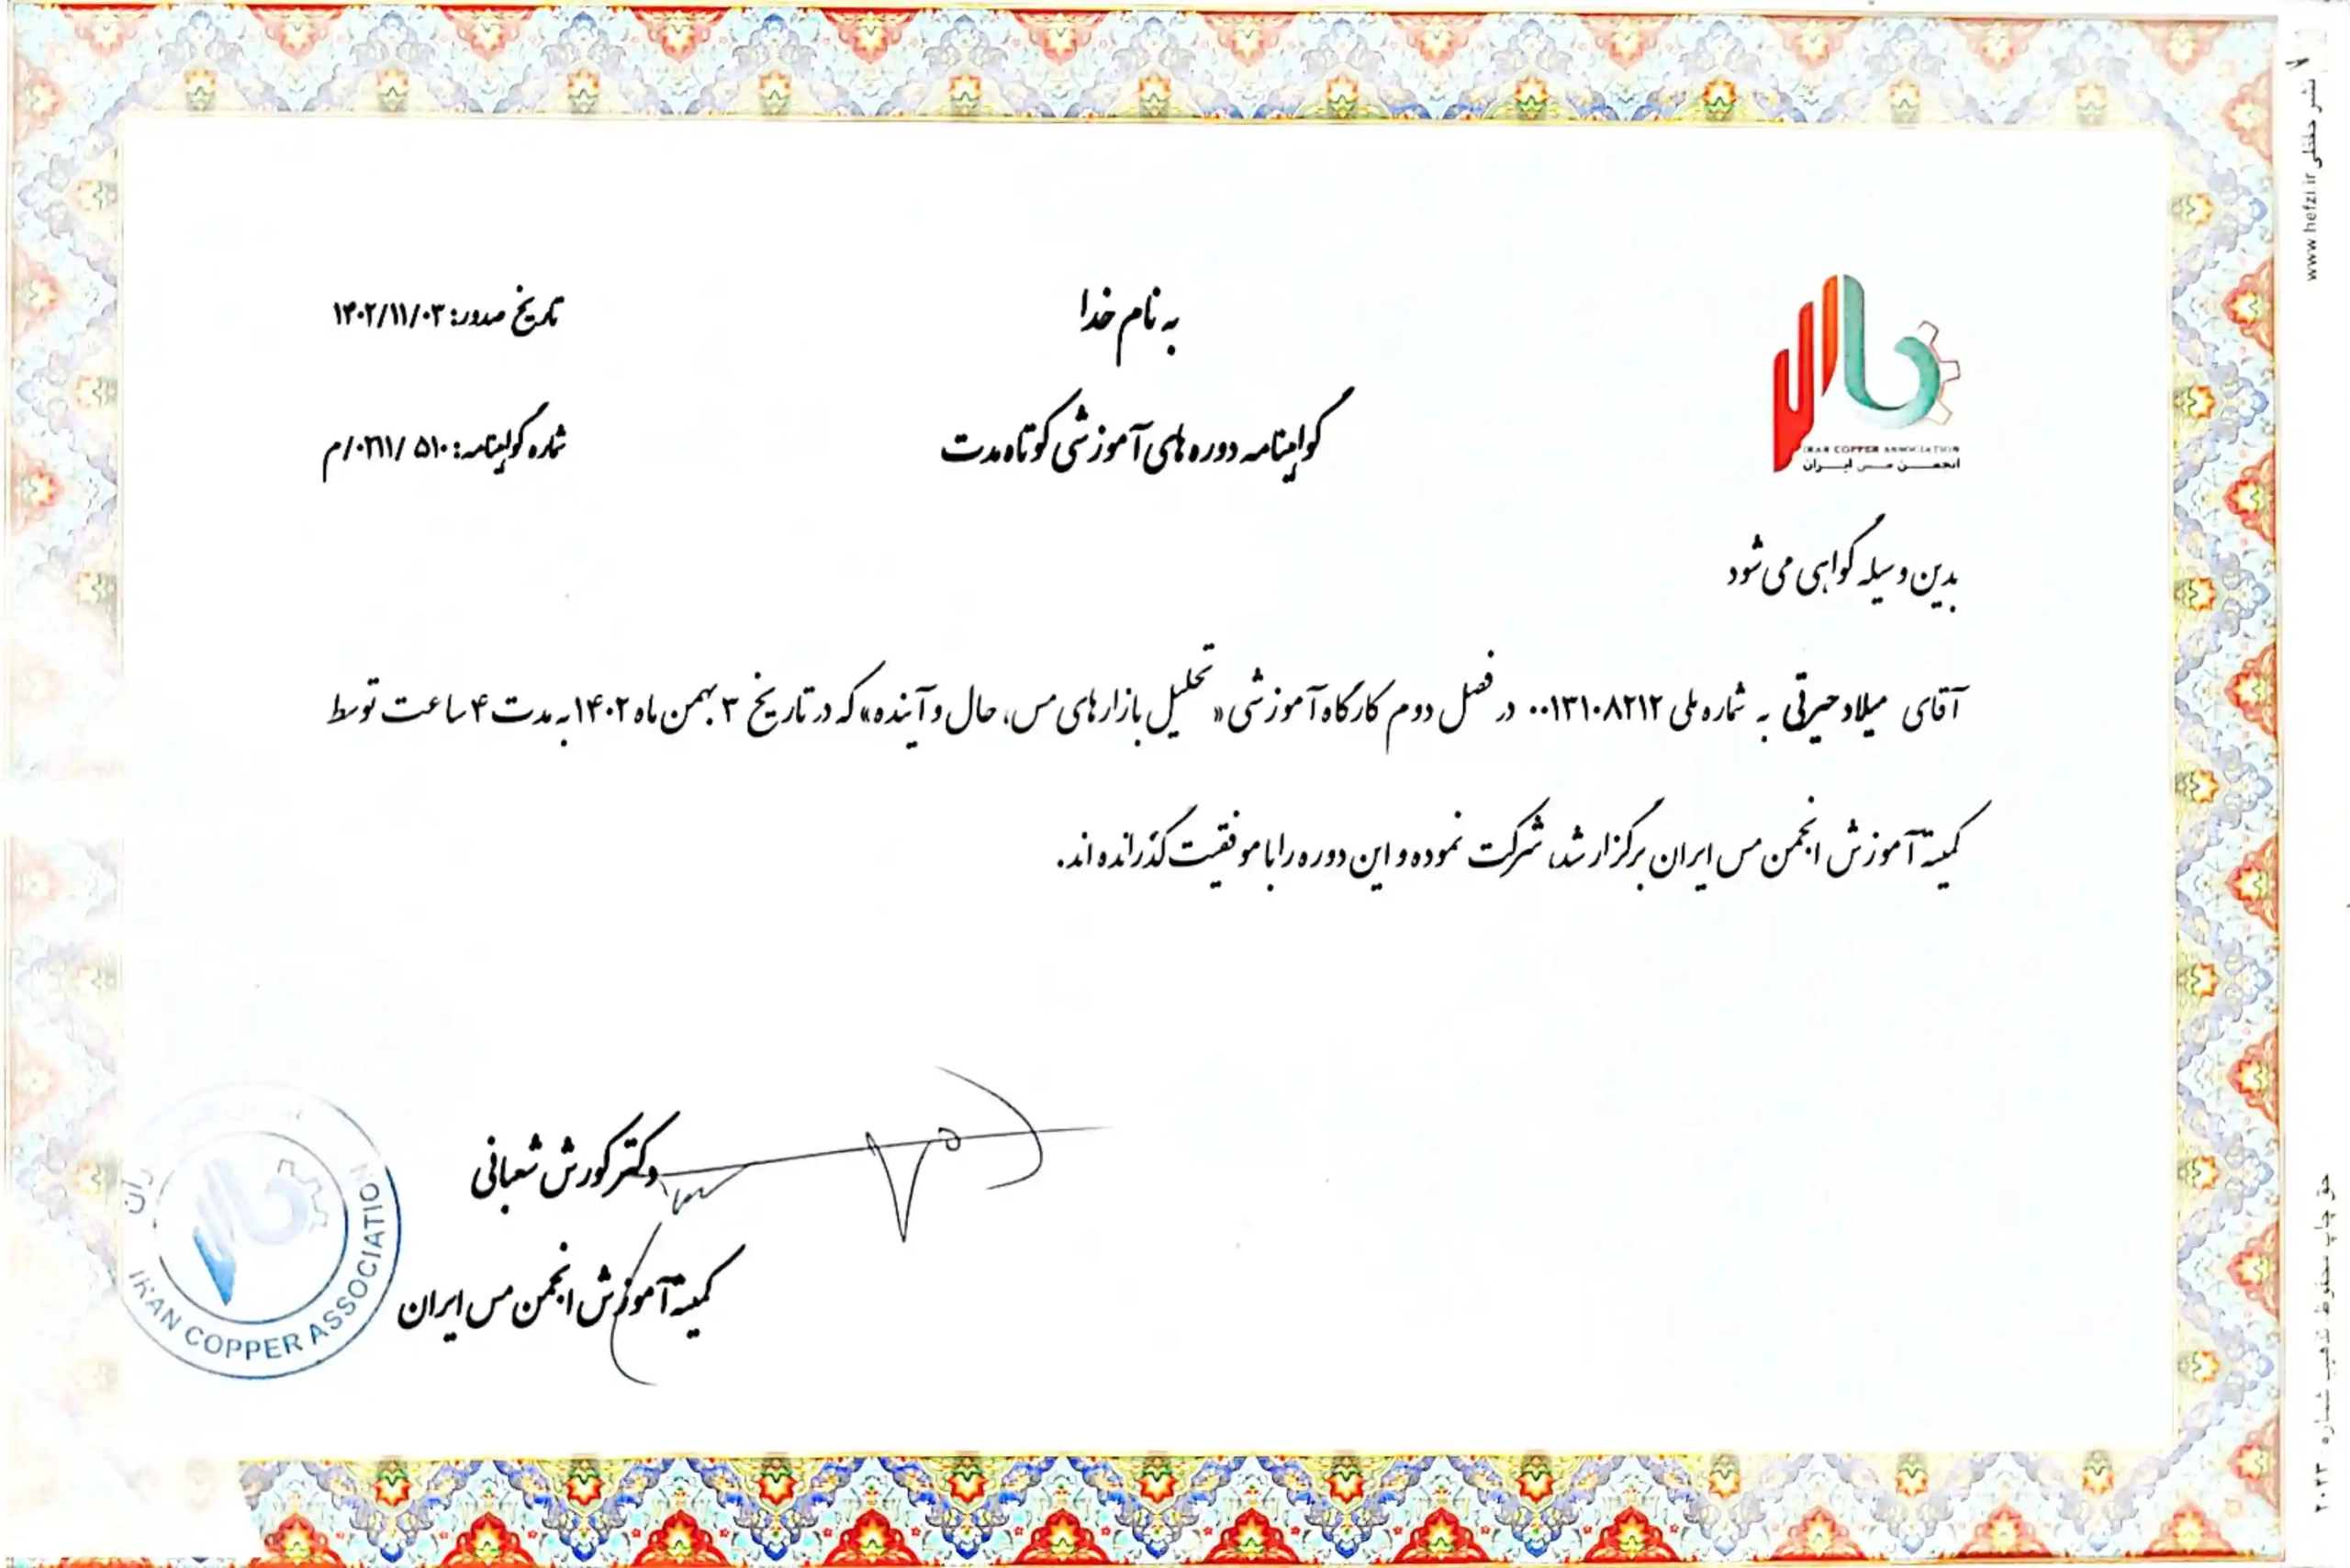 به نام خدا
گواهینامه دوره های آموزشی کوتاه مدت
تاریخ صدور: ۱۴۰۲/۱۱/۰۳
شماره گواهینامه: ۵۱۰ /۰۲۱۱/م
IRAN COPPER ASSOCIATION
انجمن مس ایران
بدین وسیله گواهی می شود
آقای میلاد حیرتی به شماره ملی ۰۰۱۳۱۰۸۲۱۲ در فصل دوم کارگاه آموزشی « تحلیل بازارهای مس، حال و آینده» که در تاریخ ۳ بهمن ماه ۱۴۰۲ به مدت ۴ ساعت توسط
کمیته آموزش انجمن مس ایران برگزار شد، شرکت نموده و این دوره را با موفقیت گذرانده اند.
دکتر کورش شعبانی
کمیته آموزش انجمن مس ایران
IRAN COPPER ASSOCIATION
نشر حفظی www.hefzi.ir
حق چاپ محفوظ تذهیب شماره ۲۰۲۳